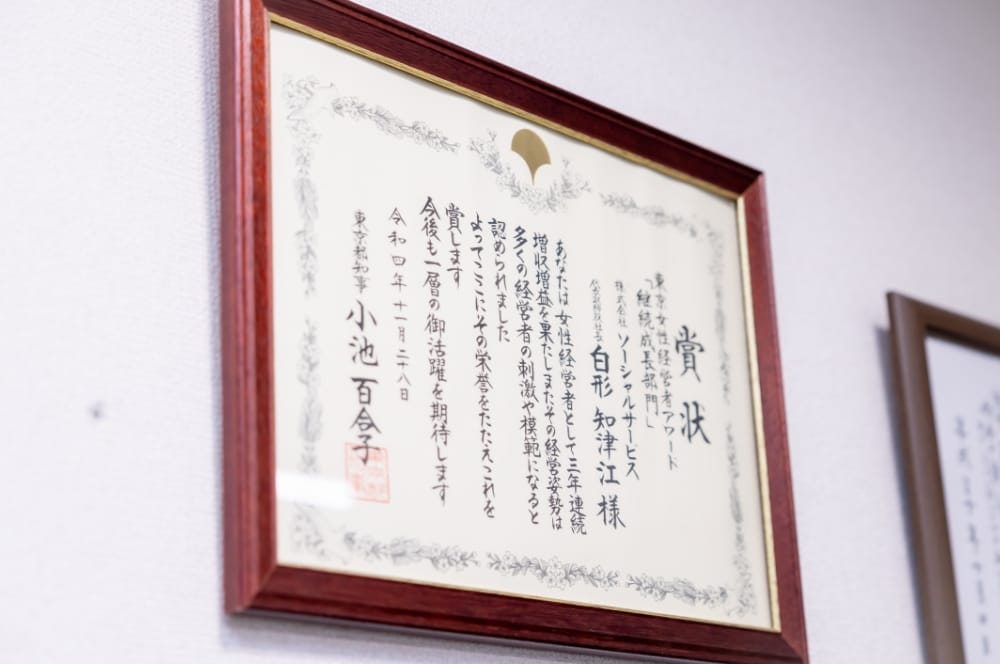 賞状
東京女性経営者アワード
「継続成長部門」
株式会社 ソーシャルサービス
代表取締役社長 白形 知津江 様
あなたは女性経営者として三年連続
増収増益を果たしまたその経営姿勢は
多くの経営者の刺激や模範になると
認められました
よってここにその栄誉をたたえこれを
賞します
今後も一層の御活躍を期待します
令和四年十一月二十八日
東京都知事 小池百合子